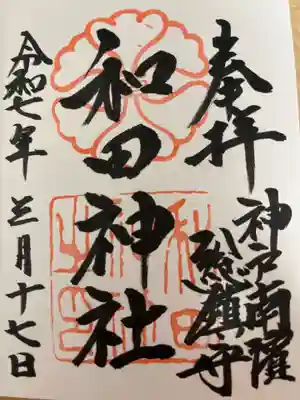 奉拝
神戸南濱
總鎮守
和田神社
令和七年
三月十七日